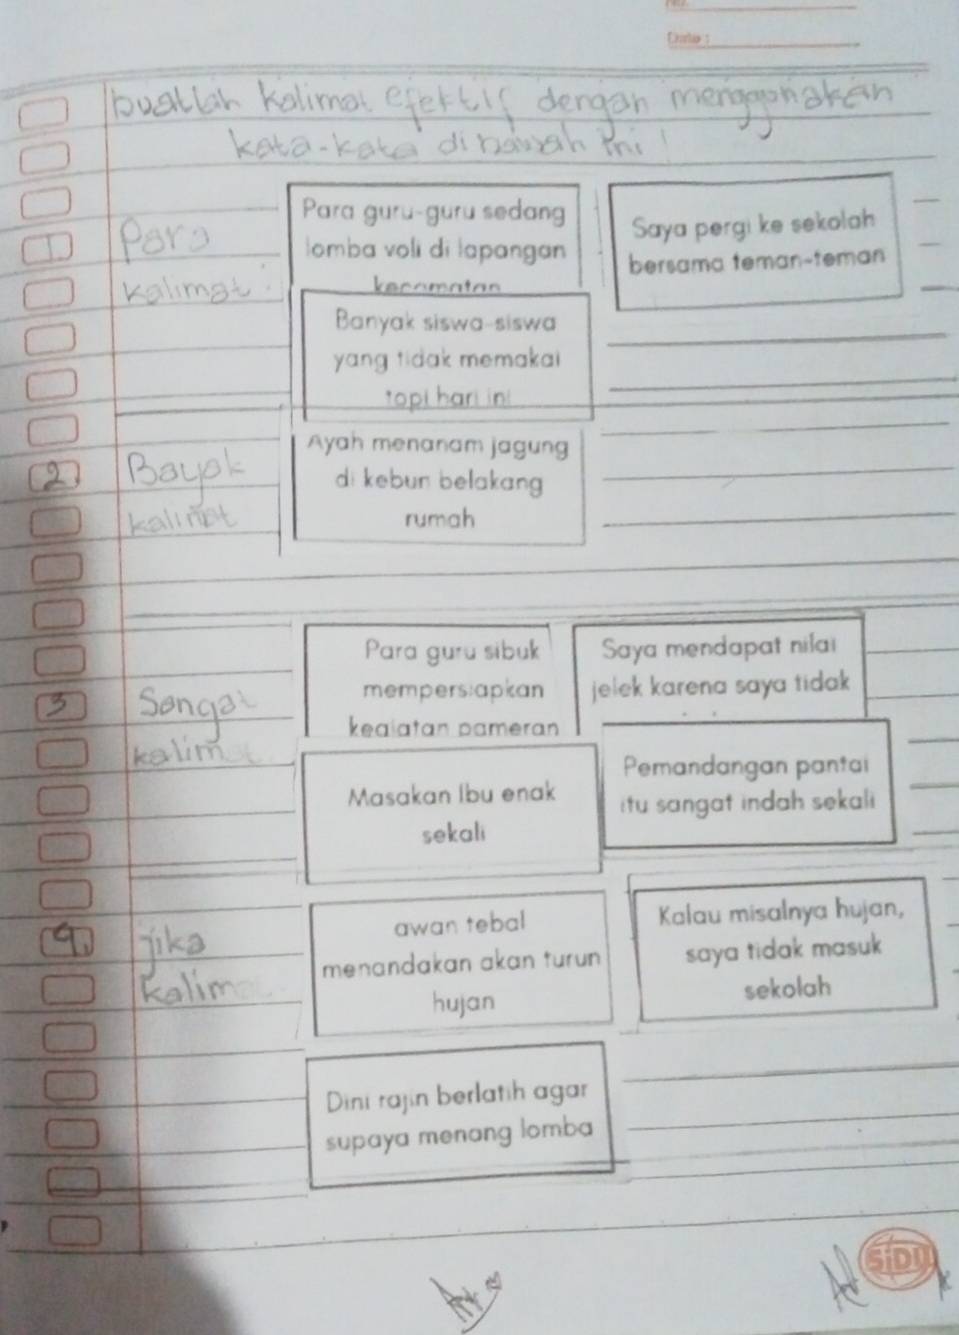 No.
Date :
buatlah kalimat efektif dengan menggonakan
kata-kata dibawah ini!
1 Para
kalimat :
Para guru-guru sedang
lomba voli di lapangan
kecamatan
Saya pergi ke sekolah
bersama teman-teman
Banyak siswa-siswa
yang tidak memakai
topi hari ini
2 Bayak
kalimat
Ayah menanam jagung
di kebun belakang
rumah
3 Sangat
kalimat
Para guru sibuk
mempersiapkan
kegiatan pameran
Saya mendapat nilai
jelek karena saya tidak
Masakan Ibu enak
sekali
Pemandangan pantai
itu sangat indah sekali
4. jika
kalimat
awan tebal
menandakan akan turun
hujan
Kalau misalnya hujan,
saya tidak masuk
sekolah
Dini rajin berlatih agar
supaya menang lomba
SiDU